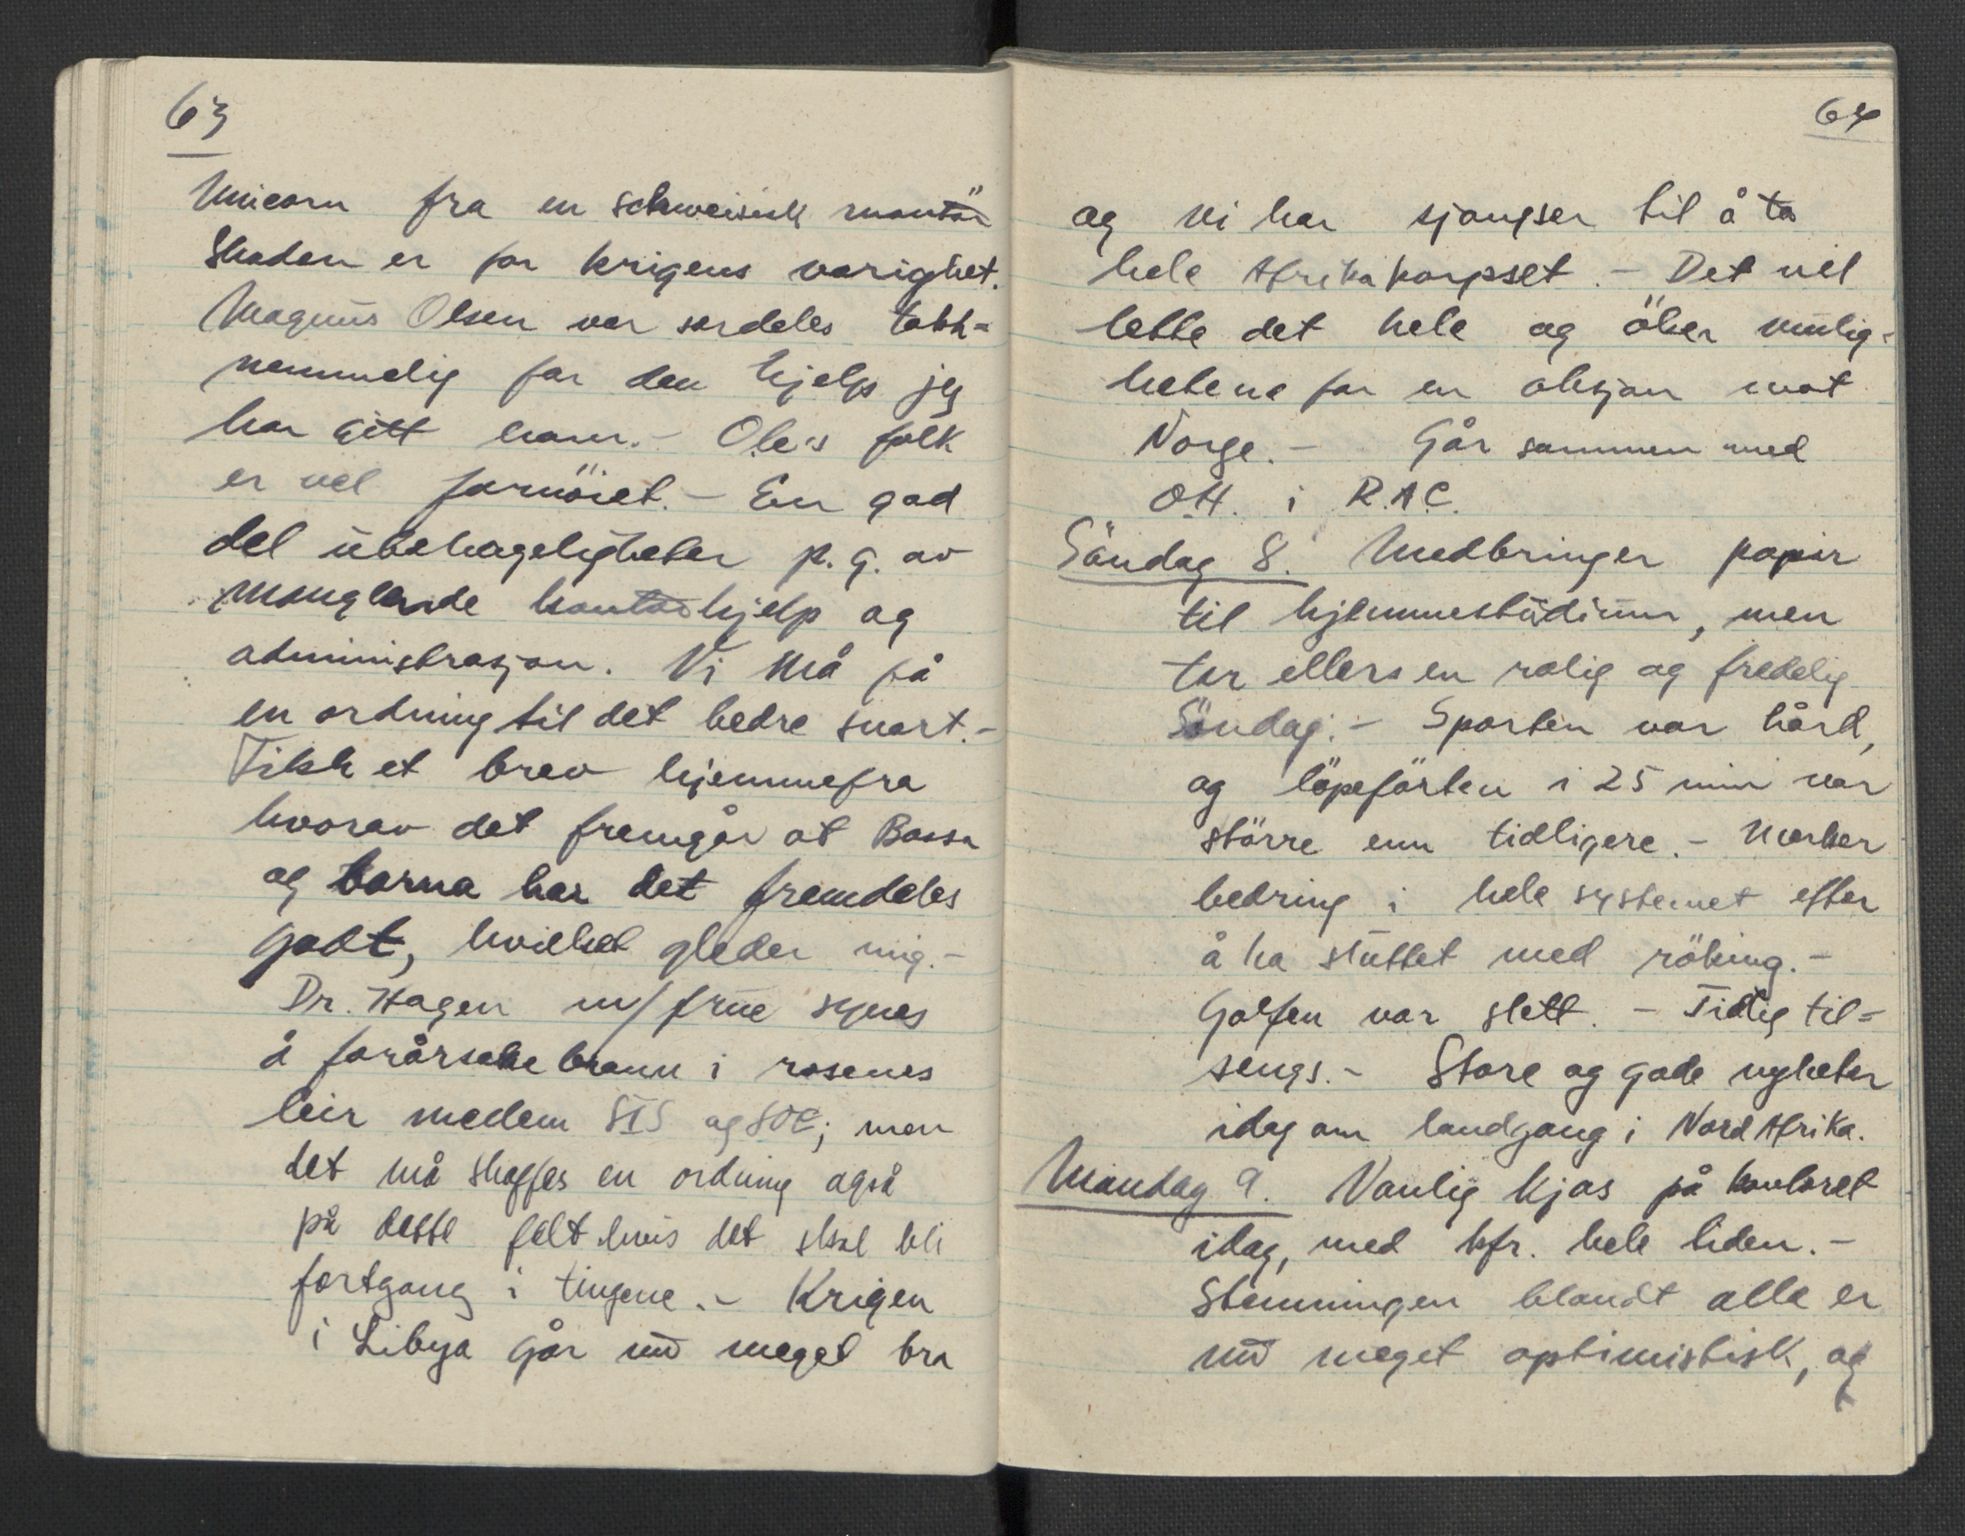 63
Unicorn fra en schweisisk montör
Skaden er for krigens varighet.
Magnus Olsen var serdeles takk=
nemmelig for den hjelp jeg
har gitt ham. - Ole's folk
er vel fornöiet. - En god
del ubehageligheter p.g. av
manglende kontorhjelp og
administrasjon. Vi må få
en ordning til det bedre snart. -
Fikk et brev hjemmefra
hvorav det fremgår at Bassa
og barna har det fremdeles
godt, hvilket gleder mig. -
Dr. Hagen m/ frue synes
å forårsake brann i rosenes
leir mellem SIS og SOE; men
det må skaffes en ordning også
på dette felt hvis det skal bli
fortgang i tingene. - Krigen
i Libya går nu meget bra
64
og vi har sjangser til å ta
hele Afrikakorpset. - Det vil
lette det hele og öker mulig=
hetene for en aksjon mot
Norge. - Går sammen med
O.H. i R.A.C.
Söndag 8. Medbringer papir
til hjemmestudium, men
tar ellers en rolig og fredelig
Söndag. - Sporten var hård,
og löpeförten i 25 min var
större enn tidligere. - Merker
bedring i hele systemet efter
å ha sluttet med röking. -
Golfen var slett. - Tidlig til=
sengs. - Store og gode nyheter
idag om landgang i Nord Afrika.
Mandag 9. Vanlig kjas på kontoret
idag, med kfr. hele tiden. -
Stemningen blandt alle er
nu meget optimistisk, og